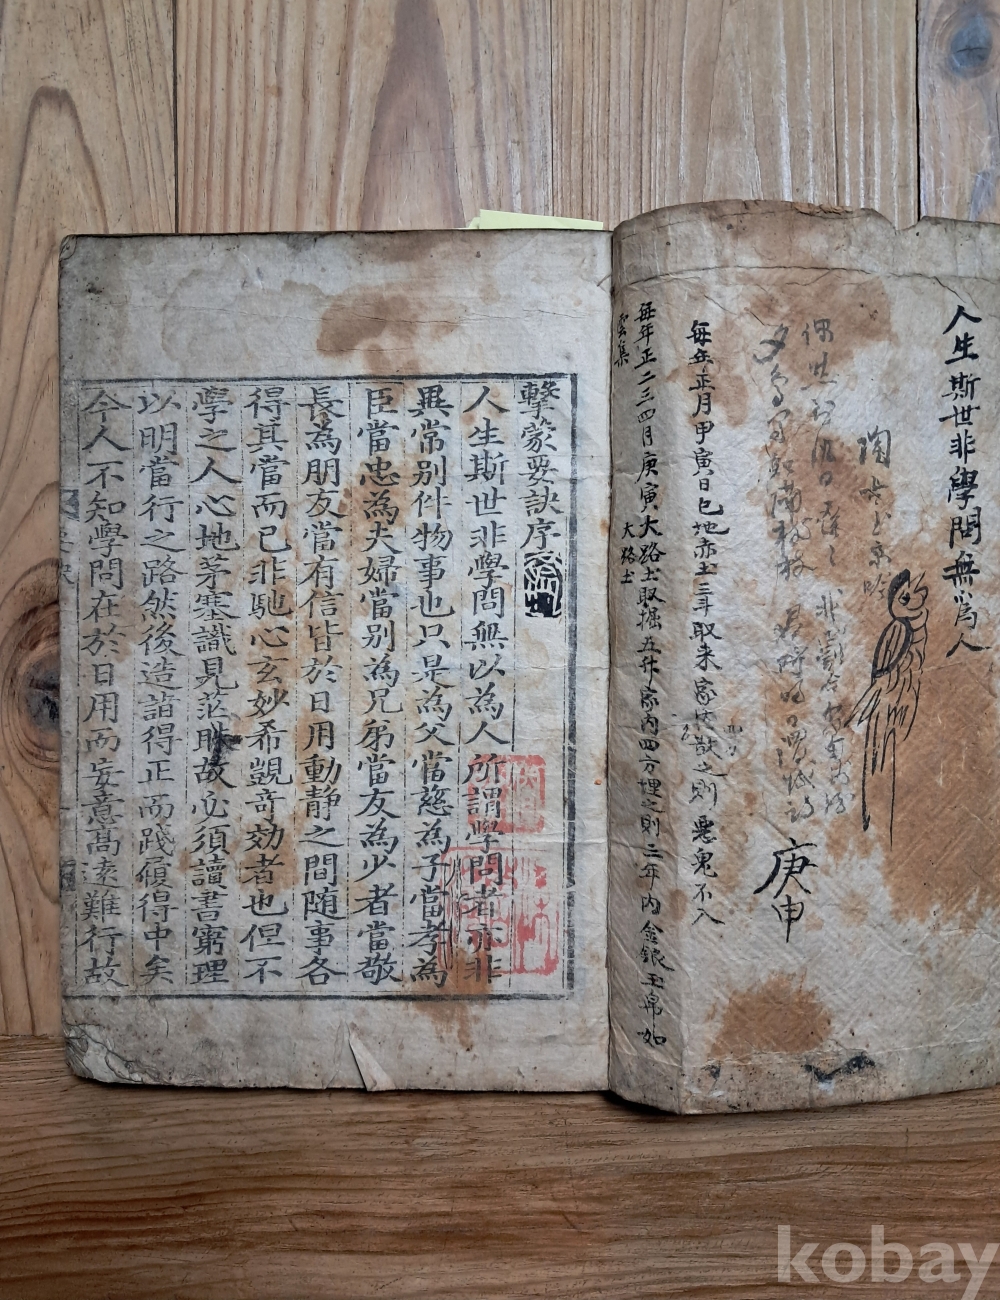 人生斯世非學問無以爲人
庚申
每年正月甲寅日巳地赤土三斗取来家内散之則惡鬼不入
每年正二三四月庚寅大路土取掘五升家内四方埋之則二年内金銀玉帛如
雲集
大路土
擊蒙要訣序
人生斯世非學問無以為人所謂學問者亦非
異常别件物事也只是為父當慈為子當孝為
臣當忠為夫婦當别為兄弟當友為少者當敬
長為朋友當有信皆於日用動靜之間随事各
得其當而已非馳心玄妙希覬竒効者也但不
學之人心地茅塞識見茫昧故必須讀書窮理
以明當行之路然後造詣得正而踐履得中矣
今人不知學問在於日用而妄意高遠難行故
kobay